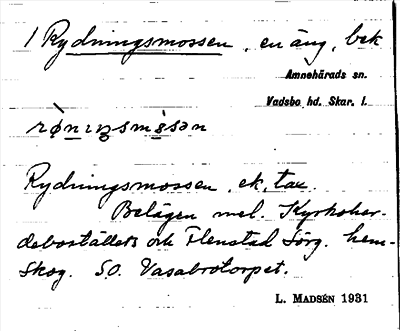 / Rydningsmossen, en äng, bek
Amnehärads sn.
Vadsbo hd. Skar. l.
Rydningsmossen, ek, tax.
Belägen mel. Kyrkoher-
deboställets och Flenstad Sörg. hem-
skog. S.O. Vasabrotorpet.
L. MADSÉN 1931